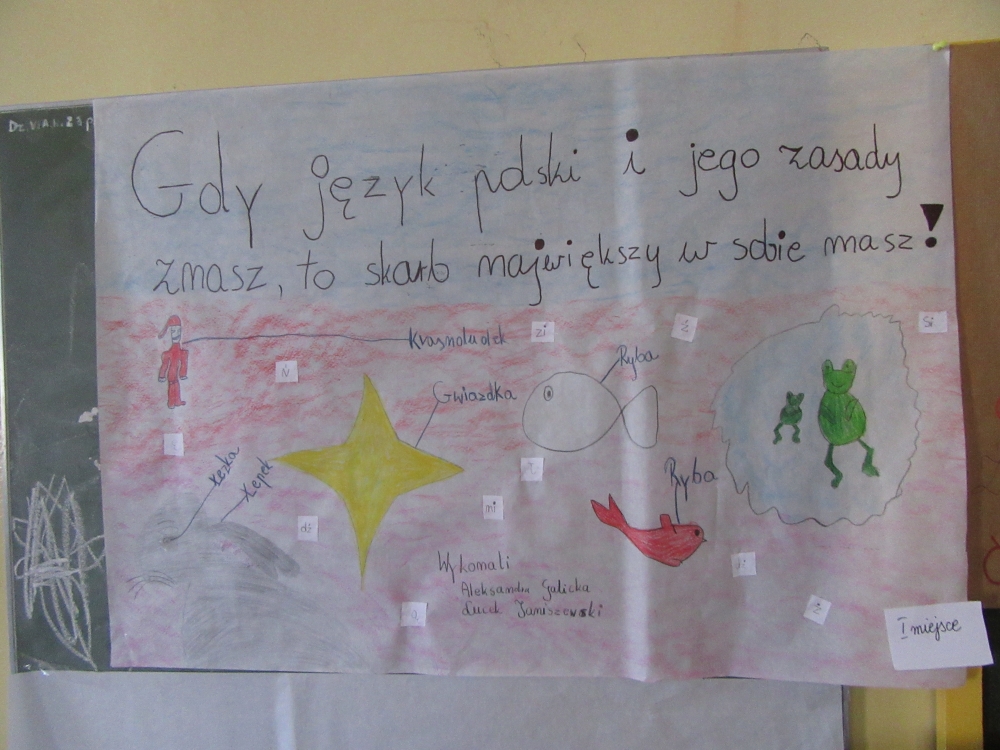 Gdy język polski i jego zasady
zmasz, to skarb największy w sobie masz!
Krasnoludek
zi
Ź
Si
Ń
Ryba
Gwiazdka
Ryba
ni
dź
Wykonali
Aleksandra Galicka
Janiszewski
I miejsce